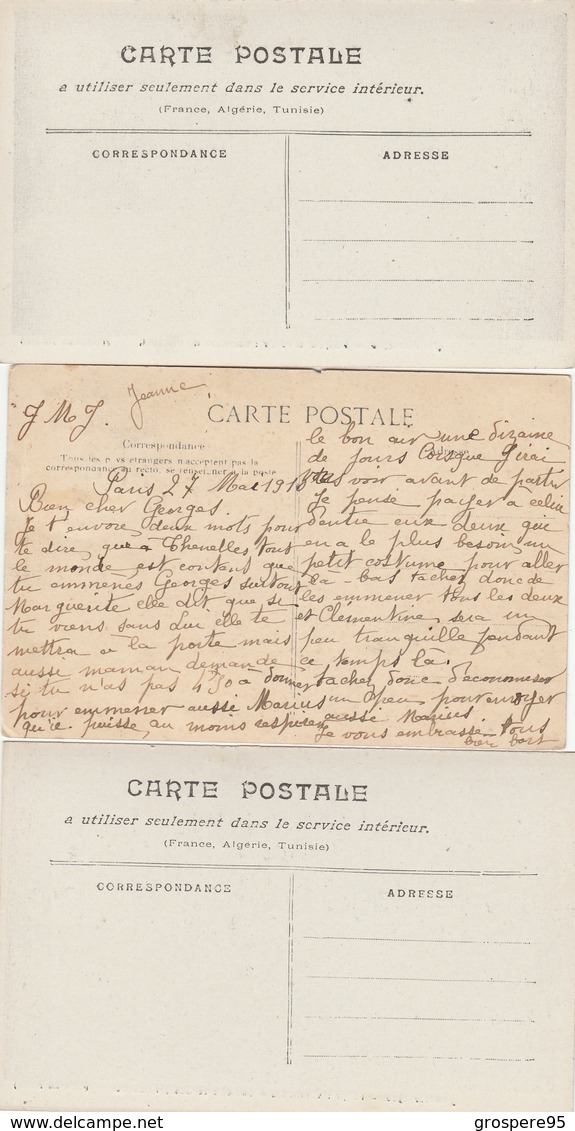 CARTE POSTALE
a utiliser seulement dans le service intérieur.
(France, Algérie, Tunisie)
CORRESPONDANCE
ADRESSE
J M J.
Jeanne
CARTE POSTALE
Correspondance
Tous les pays etrangers n'acceptent pas la
correspondance au recto, se renseigner à la poste
Paris 27 Mai 191
Bien cher Georges.
Je t'envoie deux mots pour
te dire que à Thenelles tout
le monde est content que
tu emmenes Georges surtout
Marguerite elle dit que si
tu viens sans lui elle te
mettra a la porte mais
aussi maman demande
si tu n'as pas 4f50 à donner
pour emmener aussi Marius
qu'il puisse au moins respirer
le bon air une dizaine
de jours Lorsque j'irai
vous voir avant de partir
Je pense payer à celui
d'entre eux deux que
en a le plus besoin un
petit costume pour aller
la-bas tachez donc de
les emmener tous les deux
et Clementine sera un
peu tranquille pendant
ce temps là.
tachez donc d'economiser
un peu pour envoyer
aussi Marius.
Je vous embrasse tous
bien fort
CARTE POSTALE
a utiliser seulement dans le service intérieur.
(France, Algérie, Tunisie)
CORRESPONDANCE
ADRESSE
grospere95